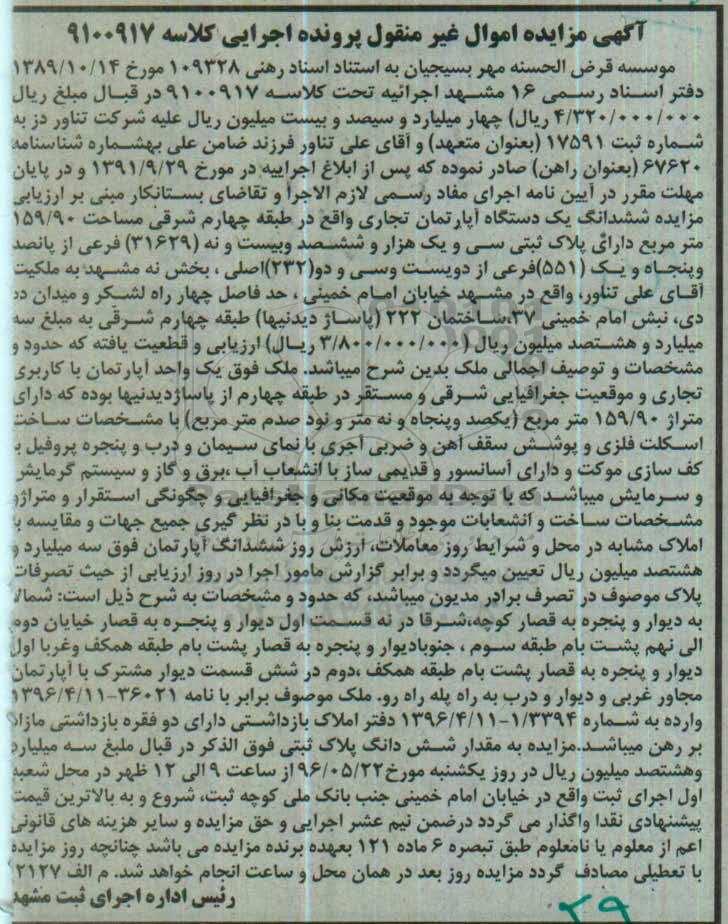 آگهی مزایده اموال غیر منقول پرونده اجرایی کلاسه ۹۱۰۰۹۱۷
موسسه قرض الحسنه مهر بسیجیان به استناد اسناد رهنی ۱۰۹۳۲۸ مورخ ۱۳۸۹/۱۰/۱۴
دفتر اسناد رسمی ۱۶ مشهد اجرائیه تحت کلاسه ۹۱۰۰۹۱۷ در قبال مبلغ ریال
۴/۳۲۰/۰۰۰/۰۰۰ ریال) چهار میلیارد و سیصد و بیست میلیون ریال علیه شرکت تناور دز به
شماره ثبت ۱۷۵۹۱ (بعنوان متعهد) و آقای علی تناور فرزند ضامن علی بهشماره شناسنامه
۶۷۶۲۰ (بعنوان راهن) صادر نموده که پس از ابلاغ اجراییه در مورخ ۱۳۹۱/۹/۲۹ و در پایان
مهلت مقرر در آیین نامه اجرای مفاد رسمی لازم الاجرا و تقاضای بستانکار مبنی بر ارزیابی
مزایده ششدانگ یک دستگاه آپارتمان تجاری واقع در طبقه چهارم شرقی مساحت ۱۵۹/۹۰
متر مربع دارای پلاک ثبتی سی و یک هزار و ششصد وبیست و نه (۳۱۶۲۹) فرعی از پانصد
وپنجاه و یک (۵۵۱)فرعی از دویست وسی و دو(۲۳۲)اصلی ، بخش نه مشهد به ملکیت
آقای علی تناور، واقع در مشهد خیابان امام خمینی ، حد فاصل چهار راه لشکر و میدان ده
دی، نبش امام خمینی ۳۷،ساختمان ۲۲۲ (پاساژ دیدنیها) طبقه چهارم شرقی به مبلغ سه
میلیارد و هشتصد میلیون ریال (۳/۸۰۰/۰۰۰/۰۰۰ ریال) ارزیابی و قطعیت یافته که حدود و
مشخصات و توصیف اجمالی ملک بدین شرح میباشد. ملک فوق یک واحد آپارتمان با کاربری
تجاری و موقعیت جغرافیایی شرقی و مستقر در طبقه چهارم از پاساژدیدنیها بوده که دارای
متراژ ۱۵۹/۹۰ متر مربع (یکصد وپنجاه و نه متر و نود صدم متر مربع) با مشخصات ساخت
اسکلت فلزی و پوشش سقف آهن و ضربی آجری با نمای سیمان و درب و پنجره پروفیل با
کف سازی موکت و دارای آسانسور و قدیمی ساز با انشعاب آب ،برق و گاز و سیستم گرمایش
و سرمایش میباشد که با توجه به موقعیت مکانی و جغرافیایی و چگونگی استقرار و متراژو
مشخصات ساخت و انشعابات موجود و قدمت بنا و با در نظر گیری جمیع جهات و مقایسه با
املاک مشابه در محل و شرایط روز معاملات، ارزش روز ششدانگ آپارتمان فوق سه میلیارد و
هشتصد میلیون ریال تعیین میگردد و برابر گزارش مامور اجرا در روز ارزیابی از حیث تصرفات
پلاک موصوف در تصرف برادر مدیون میباشد، که حدود و مشخصات به شرح ذیل است: شمالا
به دیوار و پنجره به قصار کوچه،شرقا در نه قسمت اول دیوار و پنجره به قصار خیابان دوم
الی نهم پشت بام طبقه سوم ، جنوبادیوار و پنجره به قصار پشت بام طبقه همکف وغربا اول
دیوار و پنجره به قصار پشت بام طبقه همکف ،دوم در شش قسمت دیوار مشترک با آپارتمان
مجاور غربی و دیوار و درب به راه پله راه رو. ملک موصوف برابر با نامه ۳۶۰۲۱-۱۳۹۶/۴/۱۱
وارده به شماره ۱/۳۳۹۴-۱۳۹۶/۴/۱۱ دفتر املاک بازداشتی دارای دو فقره بازداشتی مازاد
بر رهن میباشد.مزایده به مقدار شش دانگ پلاک ثبتی فوق الذکر در قبال ملبغ سه میلیارد
وهشتصد میلیون ریال در روز یکشنبه مورخ۹۶/۰۵/۲۲ از ساعت ۹ الی ۱۲ ظهر در محل شعبه
اول اجرای ثبت واقع در خیابان امام خمینی جنب بانک ملی کوچه ثبت، شروع و به بالاترین قیمت
پیشنهادی نقدا واگذار می گردد درضمن نیم عشر اجرایی و حق مزایده و سایر هزینه های قانونی
اعم از معلوم یا نامعلوم طبق تبصره ۶ ماده ۱۲۱ بعهده برنده مزایده می باشد چنانچه روز مزایده
با تعطیلی مصادف گردد مزایده روز بعد در همان محل و ساعت انجام خواهد شد. م الف ۲۱۲۷
رئیس اداره اجرای ثبت مشهد
۲۹